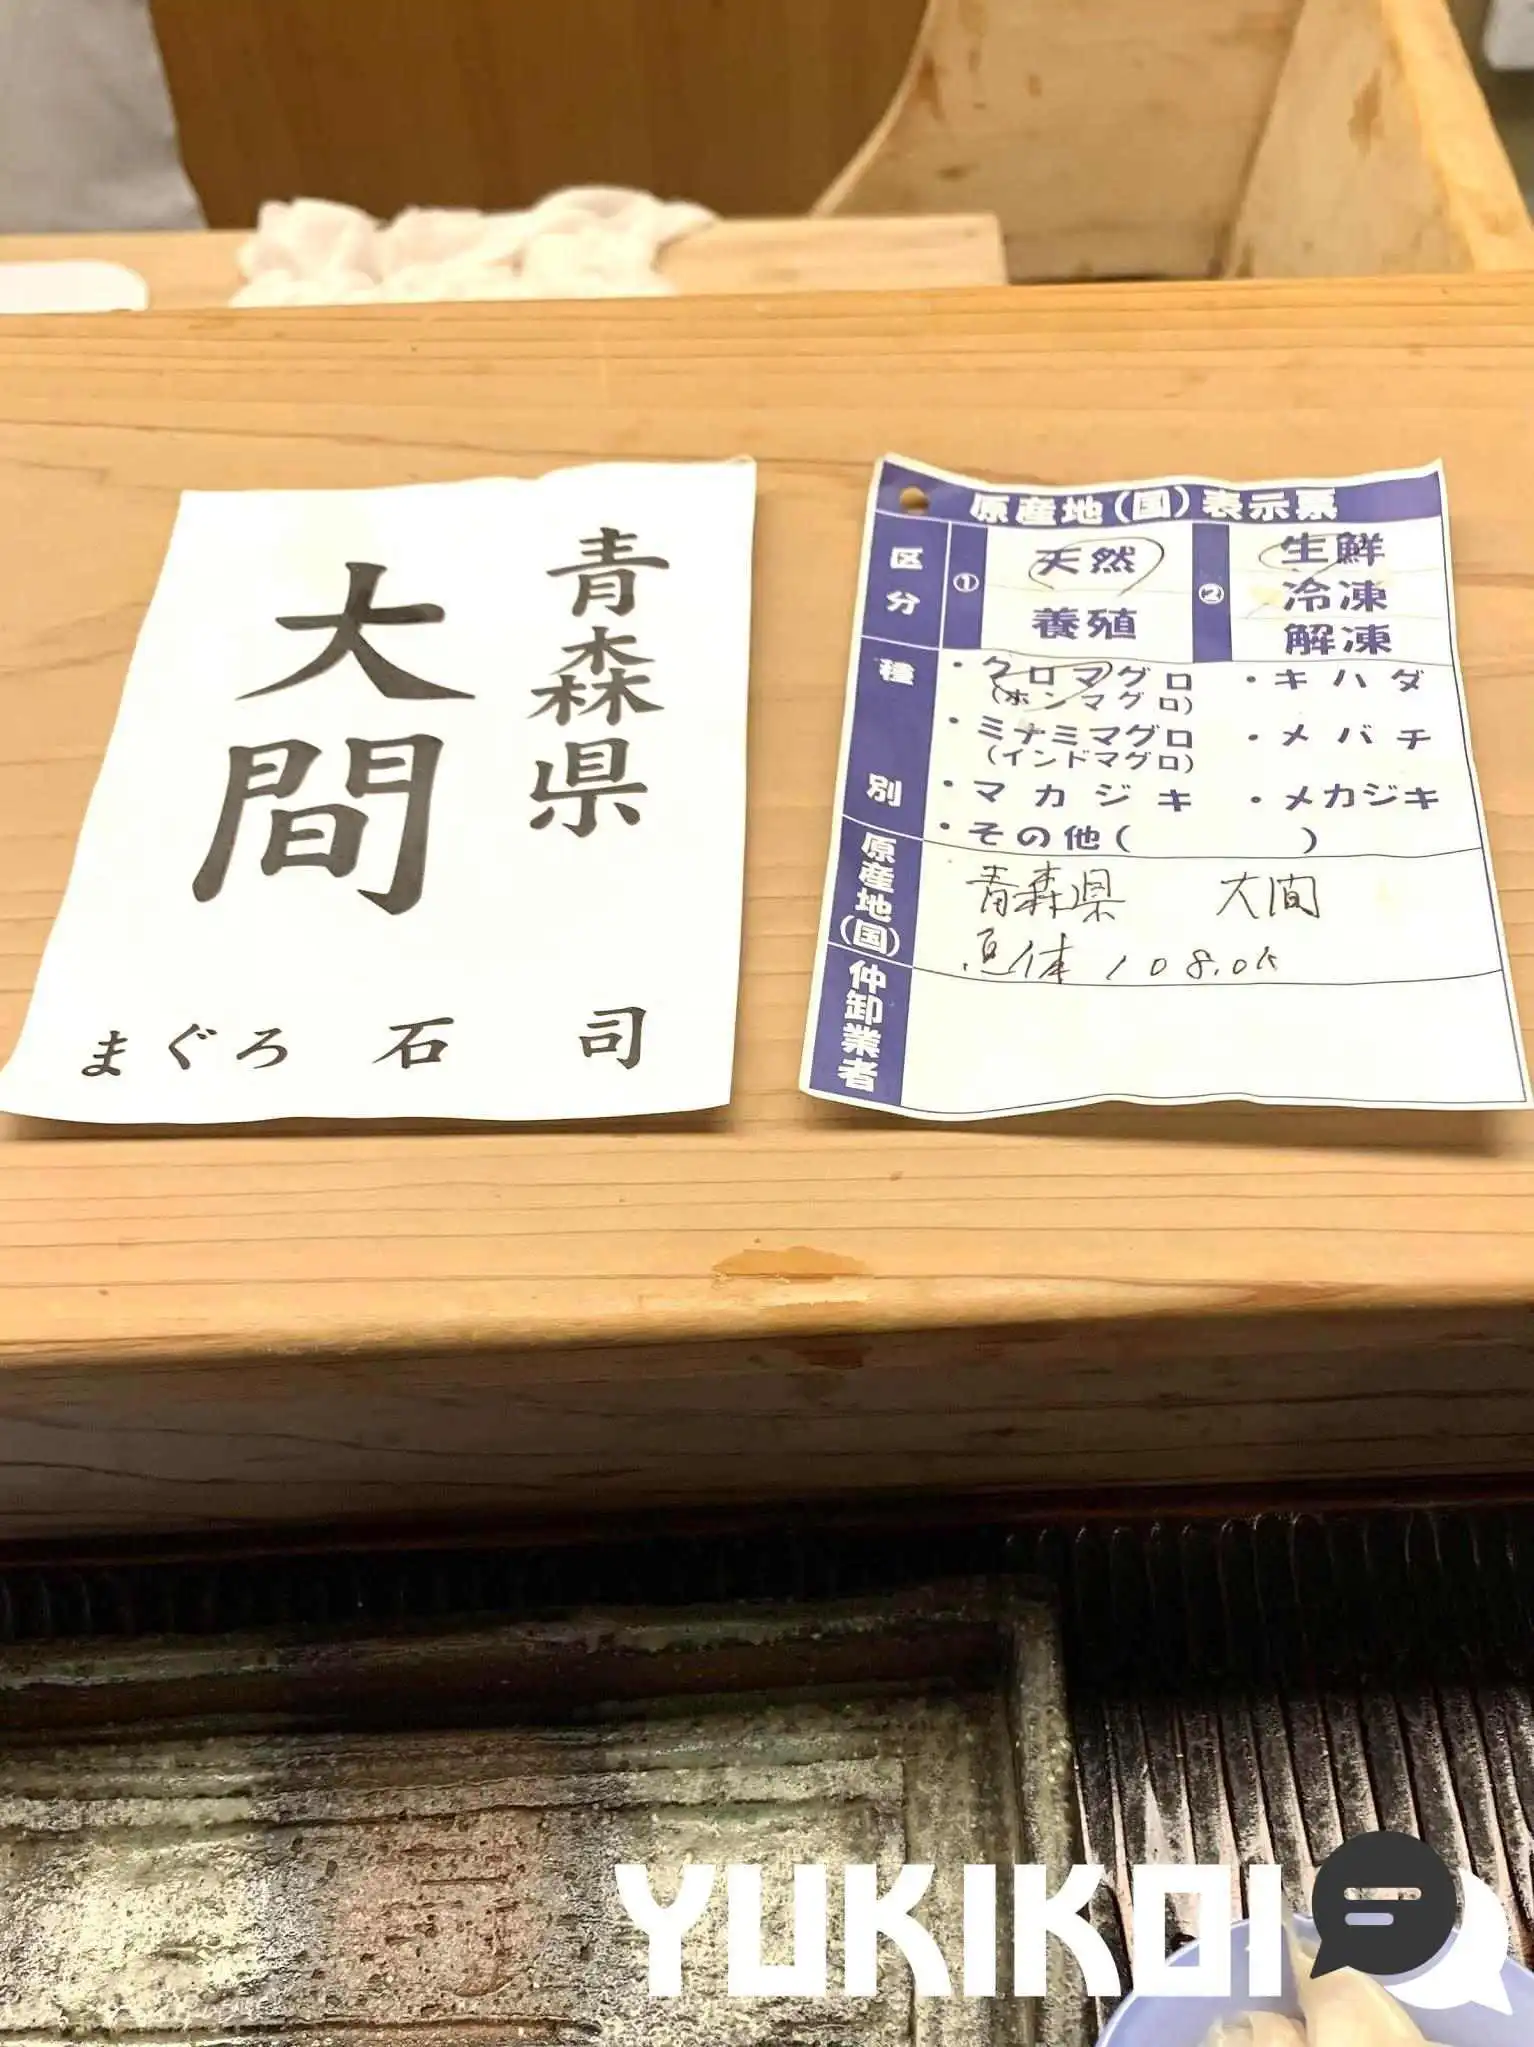 青森県
大間
まぐろ 石 司
原産地(国)表示票
区分
① 天然
養殖
② 生鮮
冷凍
解凍
種別
・クロマグロ
(ホンマグロ)
・キハダ
・ミナミマグロ
(インドマグロ)
・メバチ
・マカジキ
・メカジキ
・その他( )
原産地(国)
青森県 大間
魚体 108.0k
仲卸業者
YUKIKOI